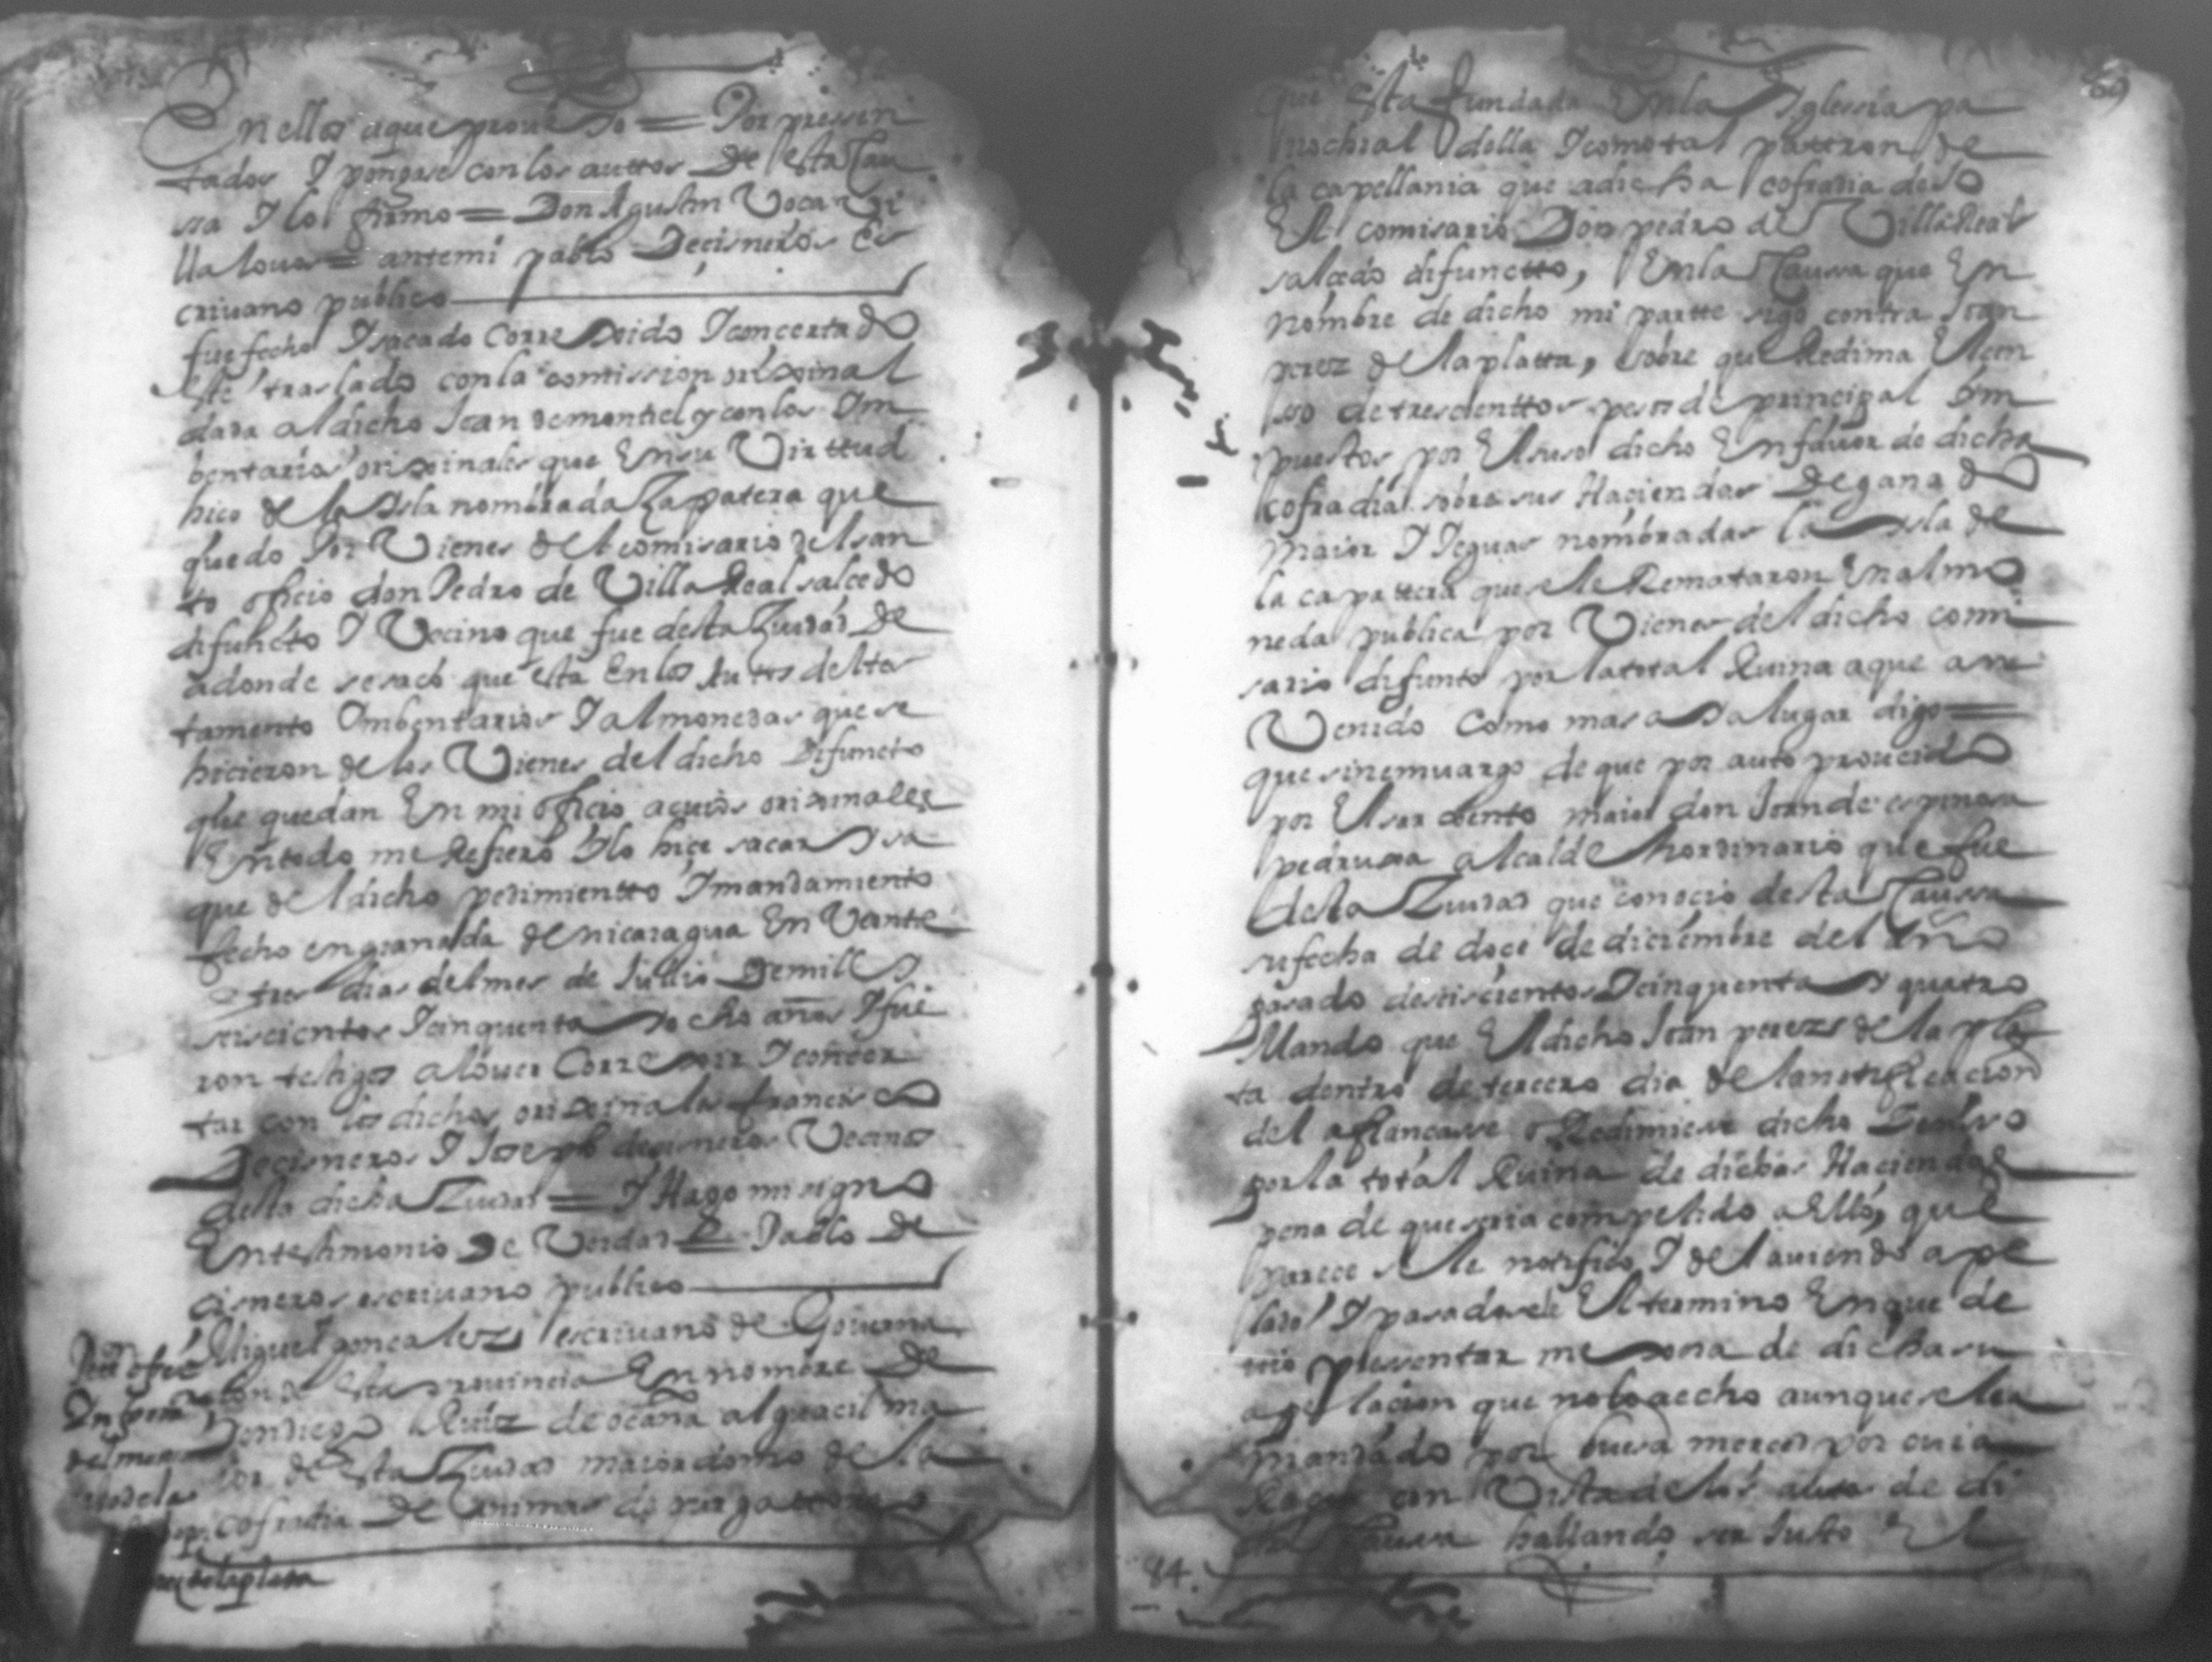 En ellos a que proueydo = Por pressen
tados Y pongase con los auttos de esta Cau
sa Y lo firmo = Don Agustin Vocar Vi
llalouos = antemi pablo Decisneros es
criuano publico
fue fecho Y sacado Corregido Y concertado
este traslado con la comission original
dada al dicho Joan de montiel y con los Ym
bentarios originales que En su Virttud
hiço de la Ysla nombrada Zapatera que
quedo Por Vienes del comisario del san
to oficio don Pedro de Villa Real salcedo
difuncto Y Vecino que fue desta Ziudad De
adonde se sacó que esta En los Auttos del tes
tamento Ymbentarios Y almonedas que se
hicieron de los Vienes del dicho Difuncto
que quedan En mi oficio a cuios originales
En todo me Refiero Y lo hiçe sacar Y sa
que del dicho pedimientto Y mandamiento
fecho en granada de nicaragua En Veinte
Y tres dias del mes de Jullio Demill Y
seiscientos Y cinquenta Y ocho años Y fue
ron testigos a lo uer Corregir Y concer
tar con los dichos originales francisco
Decisneros Y Joseph decisneros Vecinos
desta dicha Ziudad = Y Hago mi signo
En testimonio de Verdad = Pablo de
cisneros escriuano publico
Miguel gonçalez escriuano de Gouerna
cion de esta prouincia En nombre De
Don diego Ruiz de ocaña alguacil ma
ior de esta Ziudad maiordomo de la
cofradia De Animas de purgattorio
Don
de la plata
69
que Esta fundada En la Yglesia pa
rrochial della Y como tal pattron de
la capellania que a dicha cofradia dexo
El comisario Don pedro de Villa Real
salcedo difunctto, En la Caussa que En
nombre de dicho mi partte sigo contra Joan
perez de la platta, sobre que Redima El cen
so de trescienttos pesos de principal Ym
puestos por El suso dicho En fauor de dicha
cofradia sobre sus Haciendas De ganado
Maior Y Yeguas nombradas la Ysla de
la çapattera que se le Remataron En almo
neda publica por Vienes del dicho comi
sario difunto por la total Ruina a que a ve
Venido como mas aya lugar digo =
que sin emuargo de que por auto proueido
por El sargento maior don Joan de espinosa
pedruxa alcalde hordinario que fue
desta Ziudad que conocio desta Caussa
su fecha de doçe de diciembre del año
pasado de seiscientos Y cinquenta Y quatro
Mando que El dicho Joan perez de la pla
ta dentro de tercero dia de la notificacion
del afiancasse o Redimiesse dicho Senso
por la total Ruina de dichas Haciendas
pena de que seria compelido a Ello, que
parece se le notifico Y del auiendo ape
lado Y pasadosele El termino En que de
uio presentar mejora de dicha su
apellacion que no lo a echo aunque se lea
mandado por vuesa merced por cuia
Raçon con Vista de los autos de di
cha Caussa hallando ser Justo El
84.